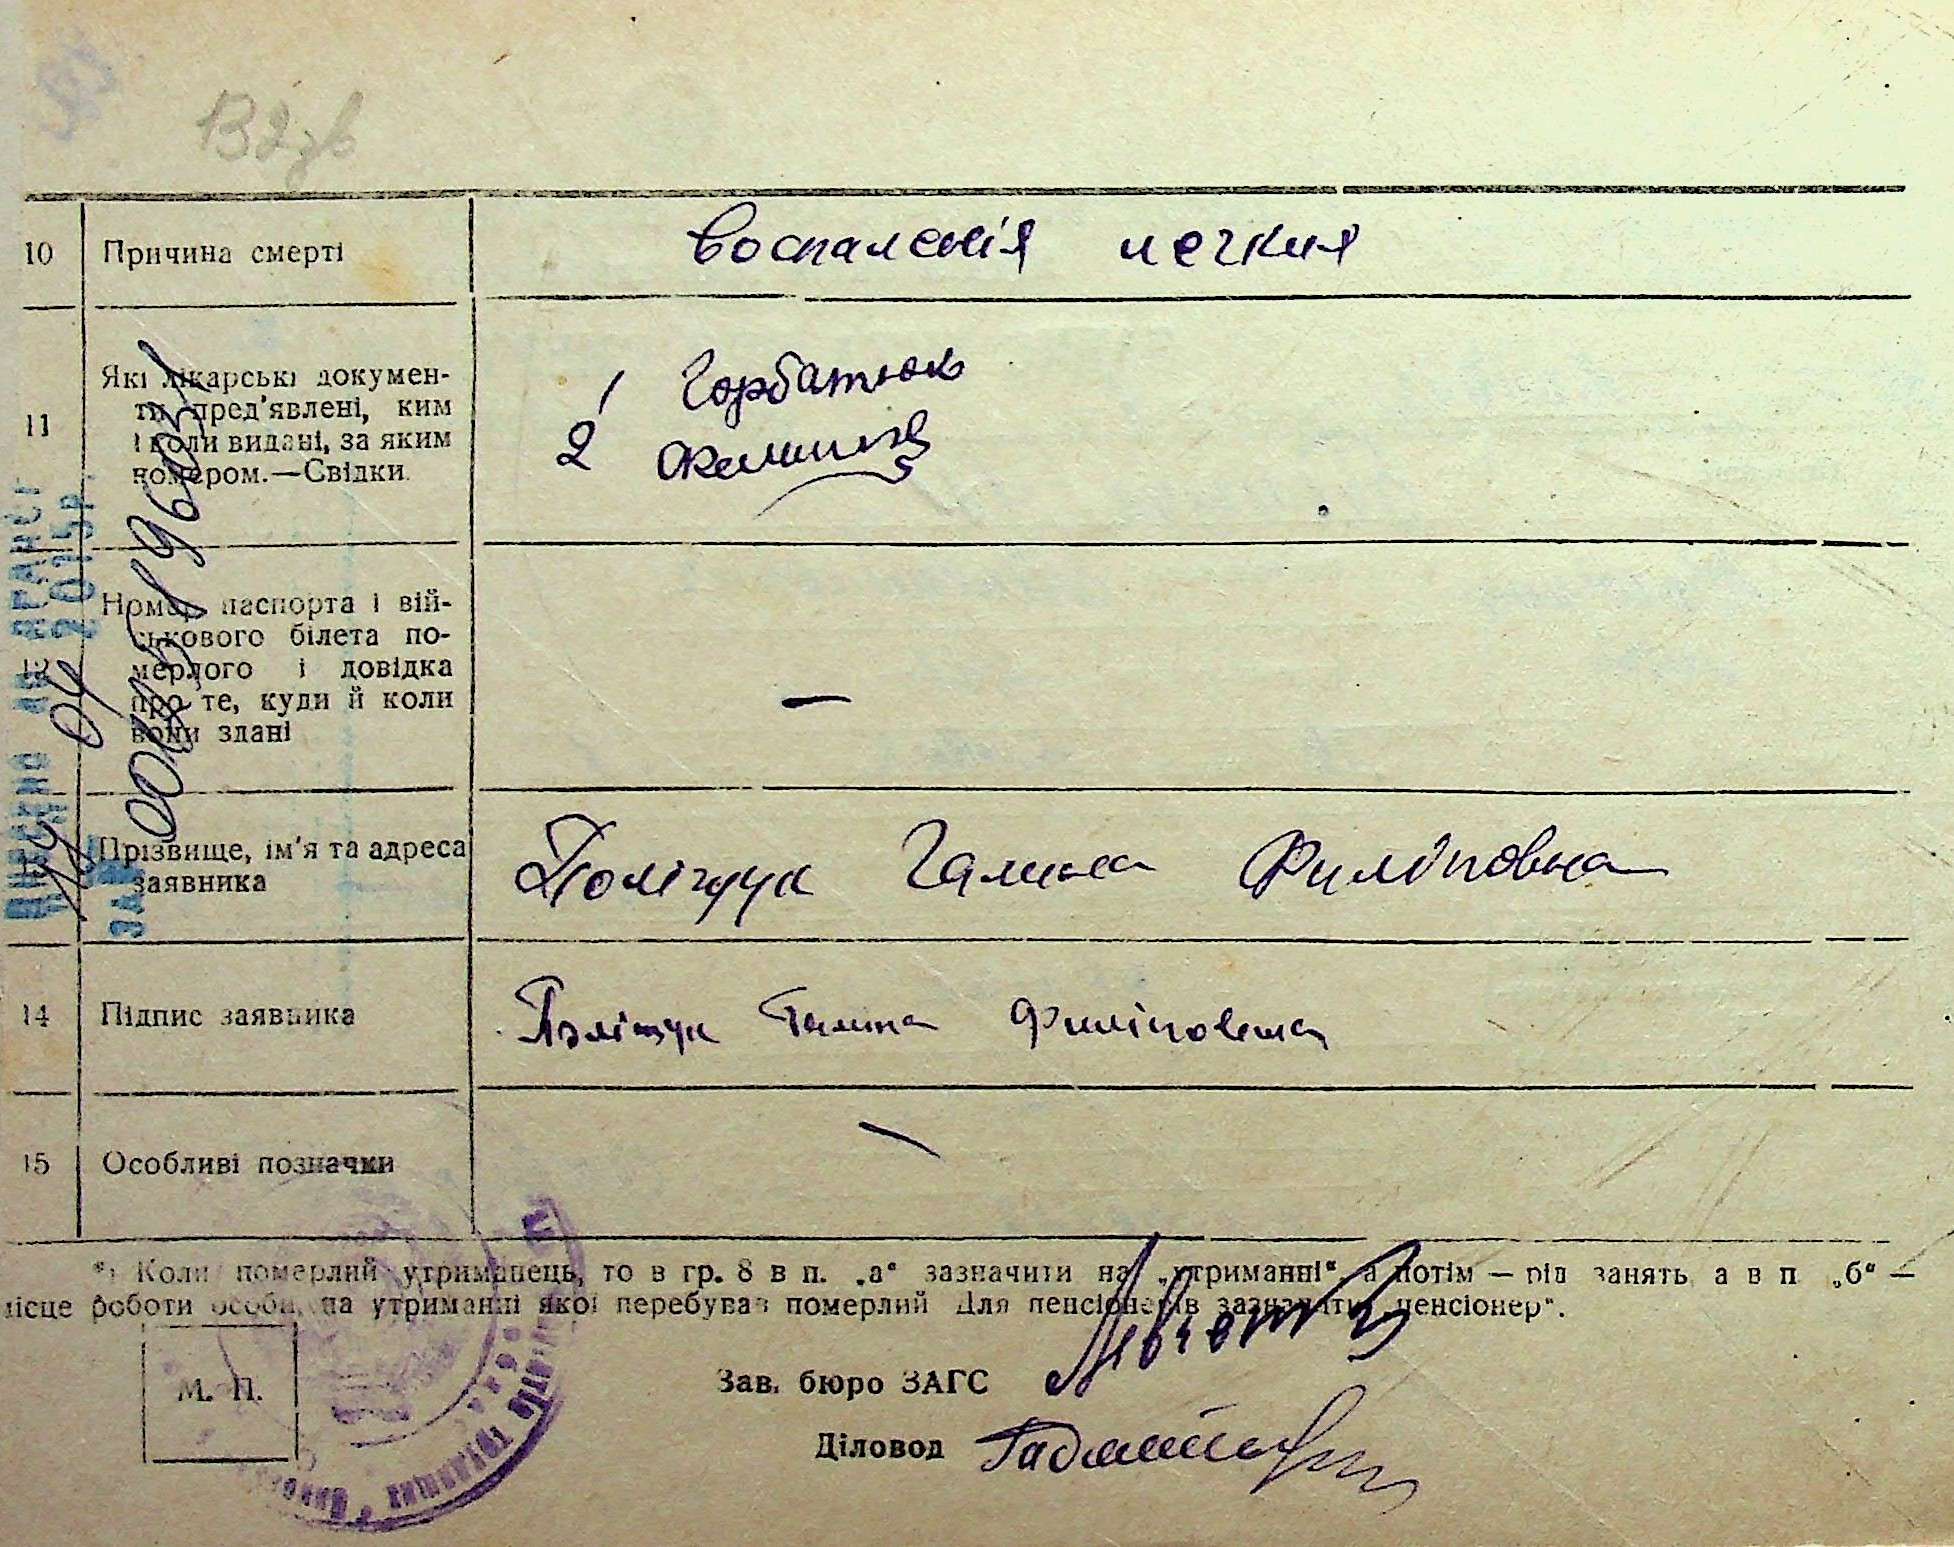 132зв
10 Причина смерті воспаленія
11 Які лікарські докумен-
ти пред'явлені, ким
і коли видані, за яким
номером.—Свідки.
1 Горбатюк
2
12 Номер паспорта і вій-
ськового білета по-
мерлого і довідка
про те, куди й коли
вони здані
—
Прізвище, ім'я та адреса
заявника
Поліщук Галина Филіповна
14 Підпис заявника Поліщук Галина Филіповна
15 Особливі позначки —
*) Коли померлий утриманець, то в гр. 8 в п. „а“ зазначити на „утриманні“, а потім — рід занять, а в п. „б“ —
місце роботи особи, на утриманні якої перебував померлий. Для пенсіонерів зазначити „пенсіонер“.
М. П.
Зав. бюро ЗАГС
Діловод